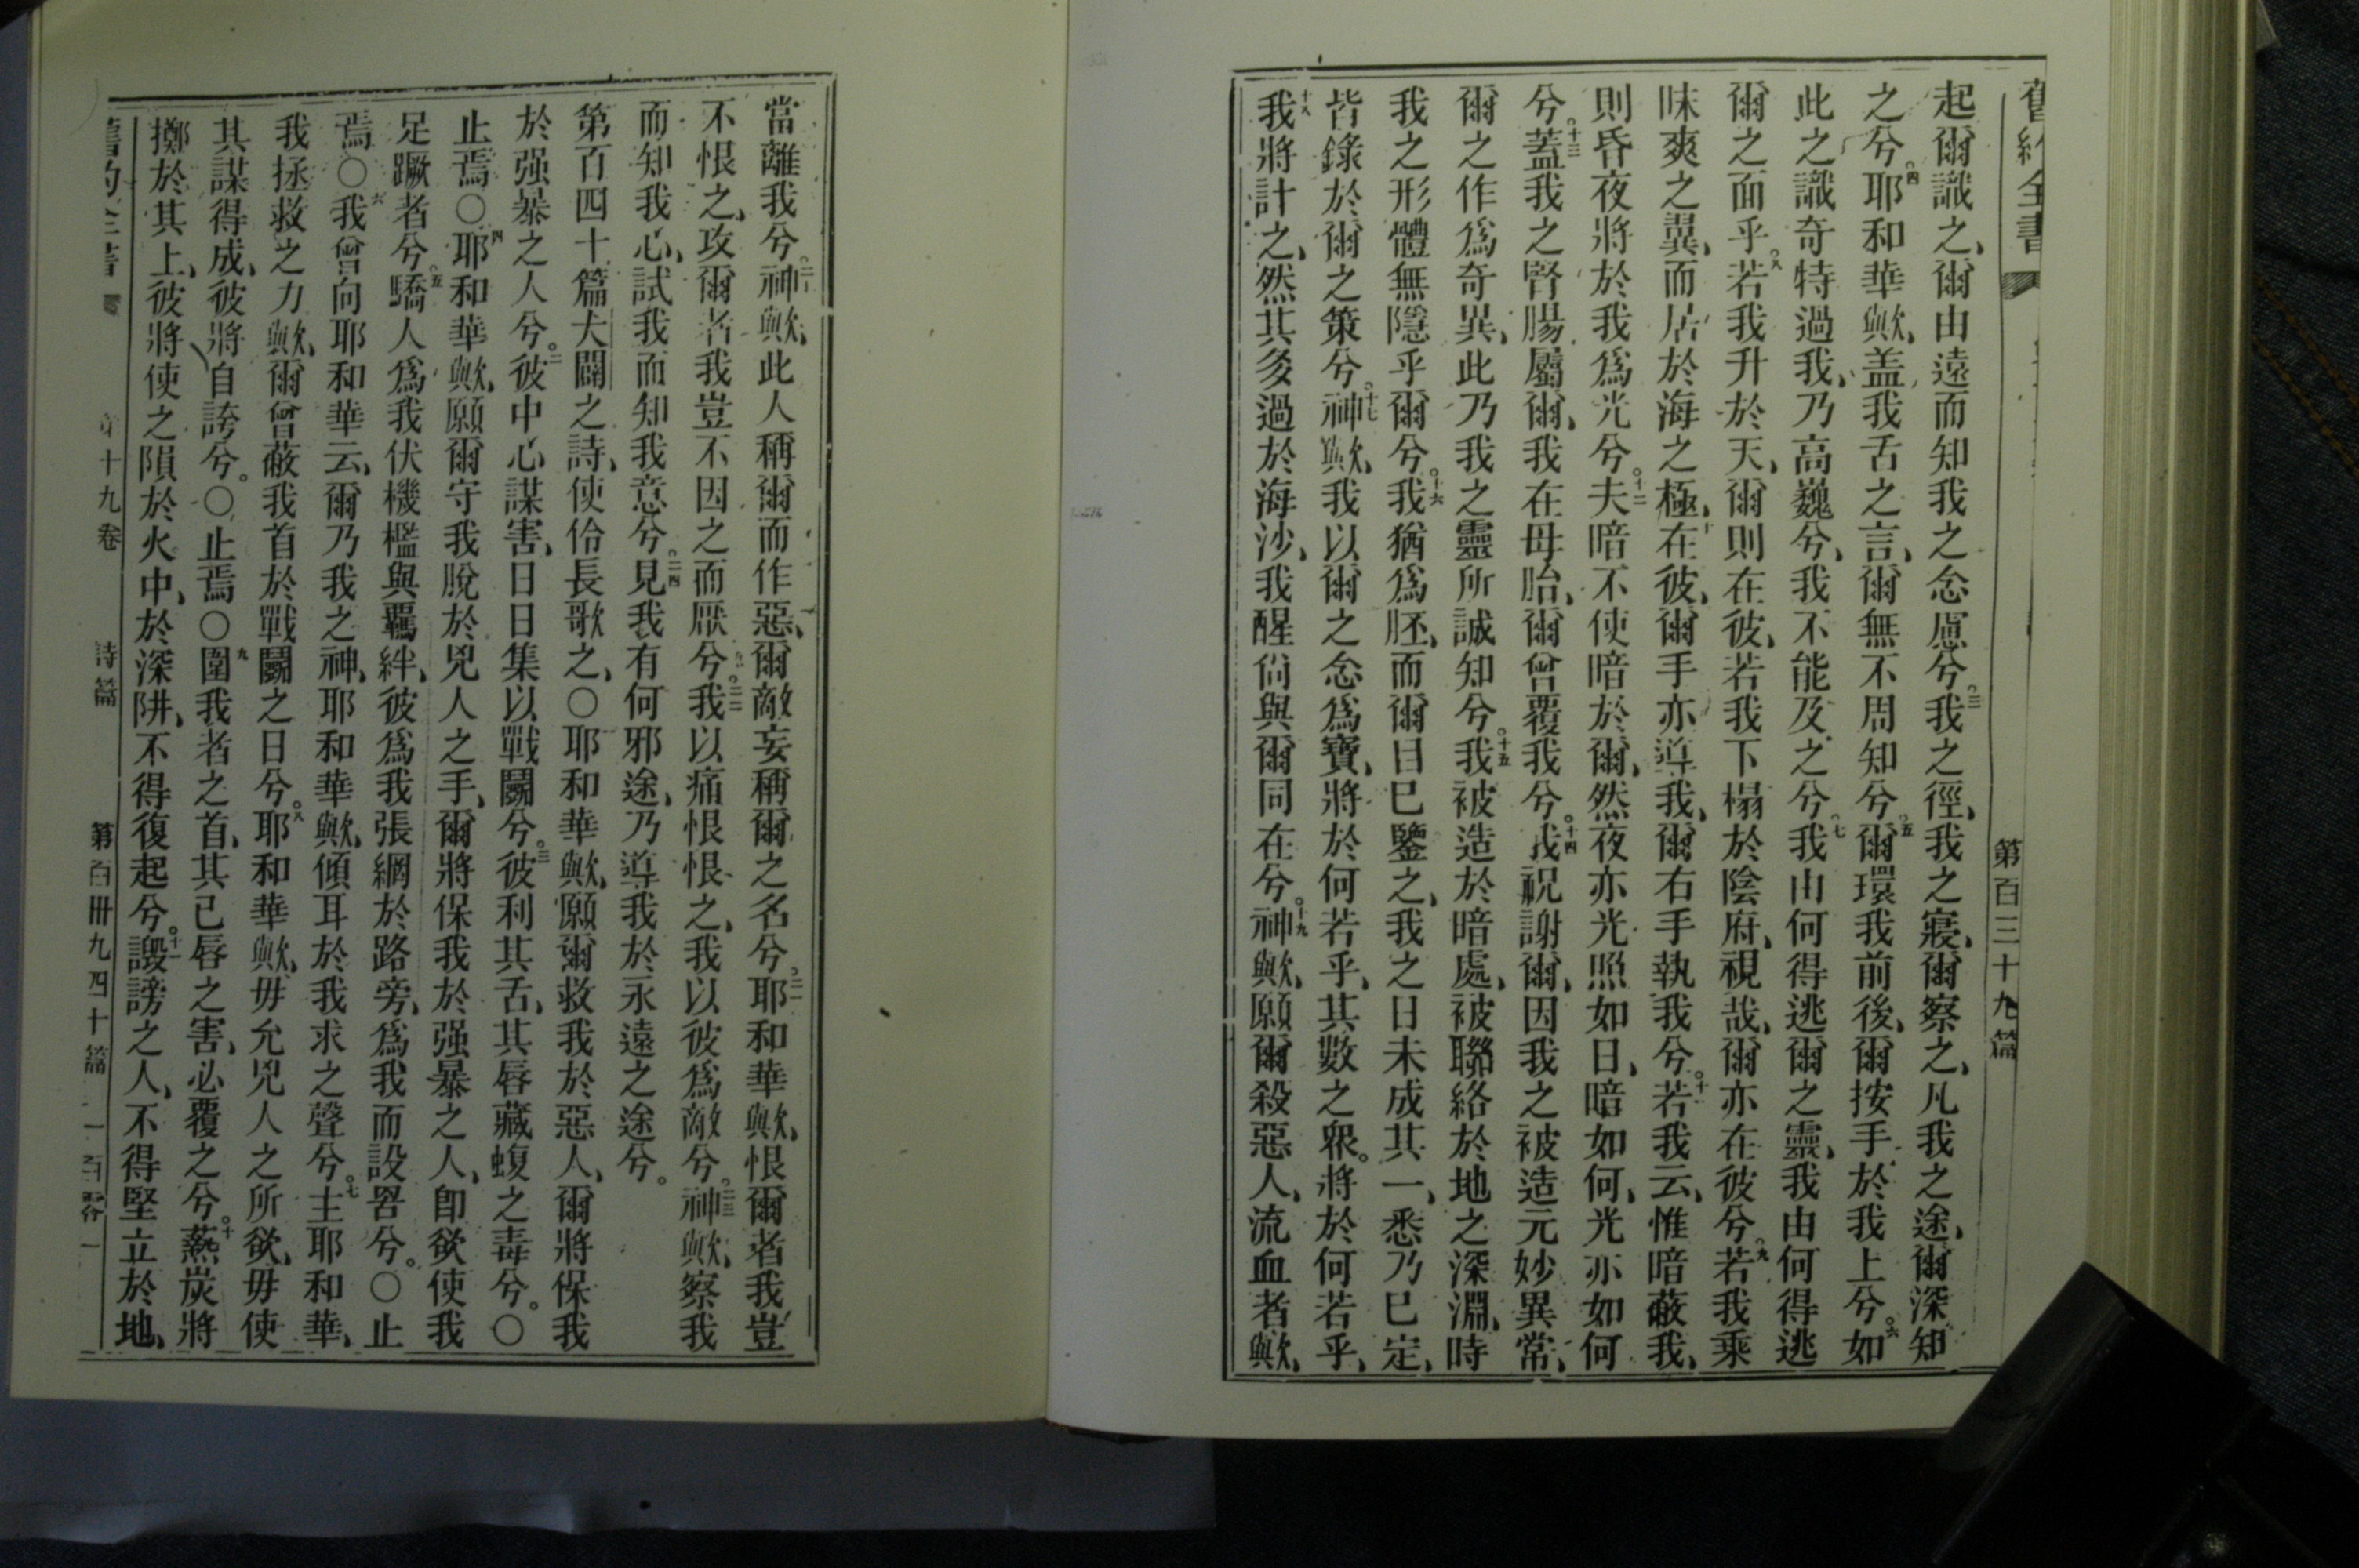 舊約全書
第百三十九篇
起爾識之、爾由遠而知我之念慮兮。三我之徑、我之寢、爾察之、凡我之途、爾深知
之兮。四耶和華歟、盖我舌之言、爾無不周知兮。五爾環我前後、爾按手於我上兮。六如
此之識奇特過我、乃高巍兮、我不能及之兮。七我由何得逃爾之靈、我由何得逃
爾之面乎。八若我升於天、爾則在彼、若我下榻於陰府、視哉、爾亦在彼兮。九若我乘
昧爽之翼、而居於海之極、十在彼、爾手亦導我、爾右手執我兮。十一若我云、惟暗蔽我、
則昏夜將於我爲光兮。十二夫暗不使暗於爾、然夜亦光照如日、暗如何、光亦如何
兮。十三蓋我之腎腸屬爾、我在母胎、爾曾覆我兮。十四我祝謝爾、因我之被造元妙異常、
爾之作爲奇異、此乃我之靈所誠知兮。十五我被造於暗處、被聯絡於地之深淵、時
我之形體無隱乎爾兮。十六我猶爲胚、而爾目已鑒之、我之日未成其一、悉乃已定、
皆錄於爾之策兮。十七神歟、我以爾之念爲寶、將於何若乎、其數之衆。將於何若乎、
十八我將計之、然其多過於海沙、我醒尙與爾同在兮。十九神歟、願爾殺惡人、流血者歟、
當離我兮。二十神歟、此人稱爾而作惡、爾敵妄稱爾之名兮。二一耶和華歟、恨爾者我豈
不恨之、攻爾者我豈不因之而厭兮。二二我以痛恨恨之、我以彼爲敵兮。二三神歟、察我
而知我心、試我而知我意兮。二四見我有何邪途、乃導我於永遠之途兮。
第百四十篇大闢之詩、使伶長歌之、○耶和華歟、願爾救我於惡人、爾將保我
於强暴之人兮。二彼中心謀害、日日集以戰鬭兮。三彼利其舌、其唇藏蝮之毒兮。○
止焉○四耶和華歟、願爾守我脫於兇人之手、爾將保我於强暴之人、卽欲使我
足蹶者兮。五驕人爲我伏機檻與羈絆、彼爲我張網於路旁、爲我而設罟兮。○止
焉○六我曾向耶和華云、爾乃我之神、耶和華歟、傾耳於我求之聲兮。七主耶和華、
我拯救之力歟、爾曾蔽我首於戰鬭之日兮。八耶和華歟、毋允兇人之所欲、毋使
其謀得成、彼將自誇兮。○止焉○九圍我者之首、其己唇之害、必覆之兮。十爇炭將
擲於其上、彼將使之隕於火中、於深阱、不得復起兮。十一譭謗之人、不得堅立於地、
舊約全書 第十九卷 詩篇 第百卅九四十篇 一百零一